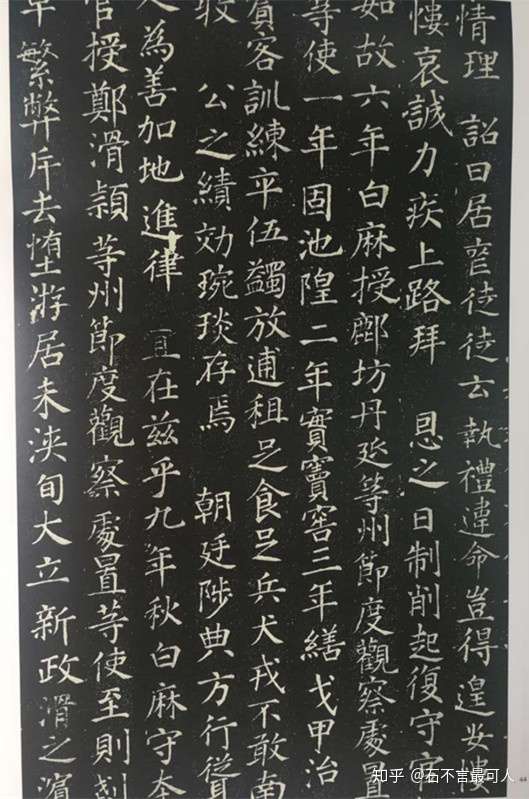 情理 詔曰居喪徒徒云執禮違命豈得遑安慺
慺哀誠力疾上路拜 恩之日制削起復守官
如故六年白麻授鄜坊丹延等州節度觀察處置
等使一年固池隍二年實竇窖三年繕戈甲治
賓客訓練卒伍蠲放逋租足食足兵犬戎不敢南
牧 公之績効琬琰存焉 朝廷陟典方行從
人為善加地進律 宜在茲乎九年秋白麻守本
官授鄭滑潁等州節度觀察處置等使至則剗
革繁弊斥去惰游居未浹旬大立新政滑之濱
44
知乎 @石不言最可人